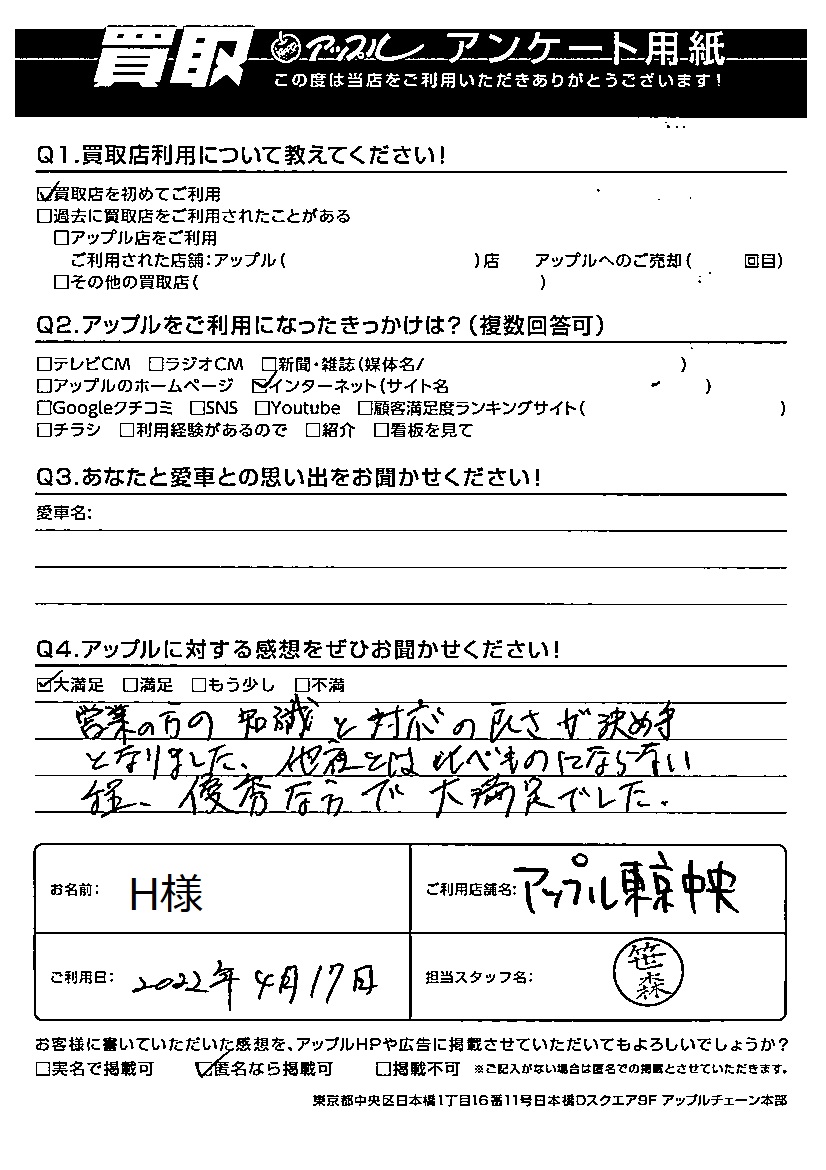 買取 アップル アンケート用紙
この度は当店をご利用いただきありがとうございます!
Q1.買取店利用について教えてください!
☑買取店を初めてご利用
□過去に買取店をご利用されたことがある
□アップル店をご利用
ご利用された店舗:アップル( )店 アップルへのご売却( 回目)
□その他の買取店( )
Q2.アップルをご利用になったきっかけは?(複数回答可)
□テレビCM □ラジオCM □新聞・雑誌(媒体名/ )
□アップルのホームページ ☑インターネット(サイト名 )
□Googleクチコミ □SNS □Youtube □顧客満足度ランキングサイト( )
□チラシ □利用経験があるので □紹介 □看板を見て
Q3.あなたと愛車との思い出をお聞かせください!
愛車名:
Q4.アップルに対する感想をぜひお聞かせください!
☑大満足 □満足 □もう少し □不満
営業の方の知識と対応の良さが決め手
となりました、他店とは比べものにならない
程、優秀な方で大満足でした.
お名前: H様 ご利用店舗名: アップル東京中央
ご利用日: 2022年4月17日 担当スタッフ名: 笹森
お客様に書いていただいた感想を、アップルHPや広告に掲載させていただいてもよろしいでしょうか?
□実名で掲載可 ☑匿名なら掲載可 □掲載不可 ※ご記入がない場合は匿名での掲載とさせていただきます。
東京都中央区日本橋1丁目16番11号日本橋Dスクエア9F アップルチェーン本部